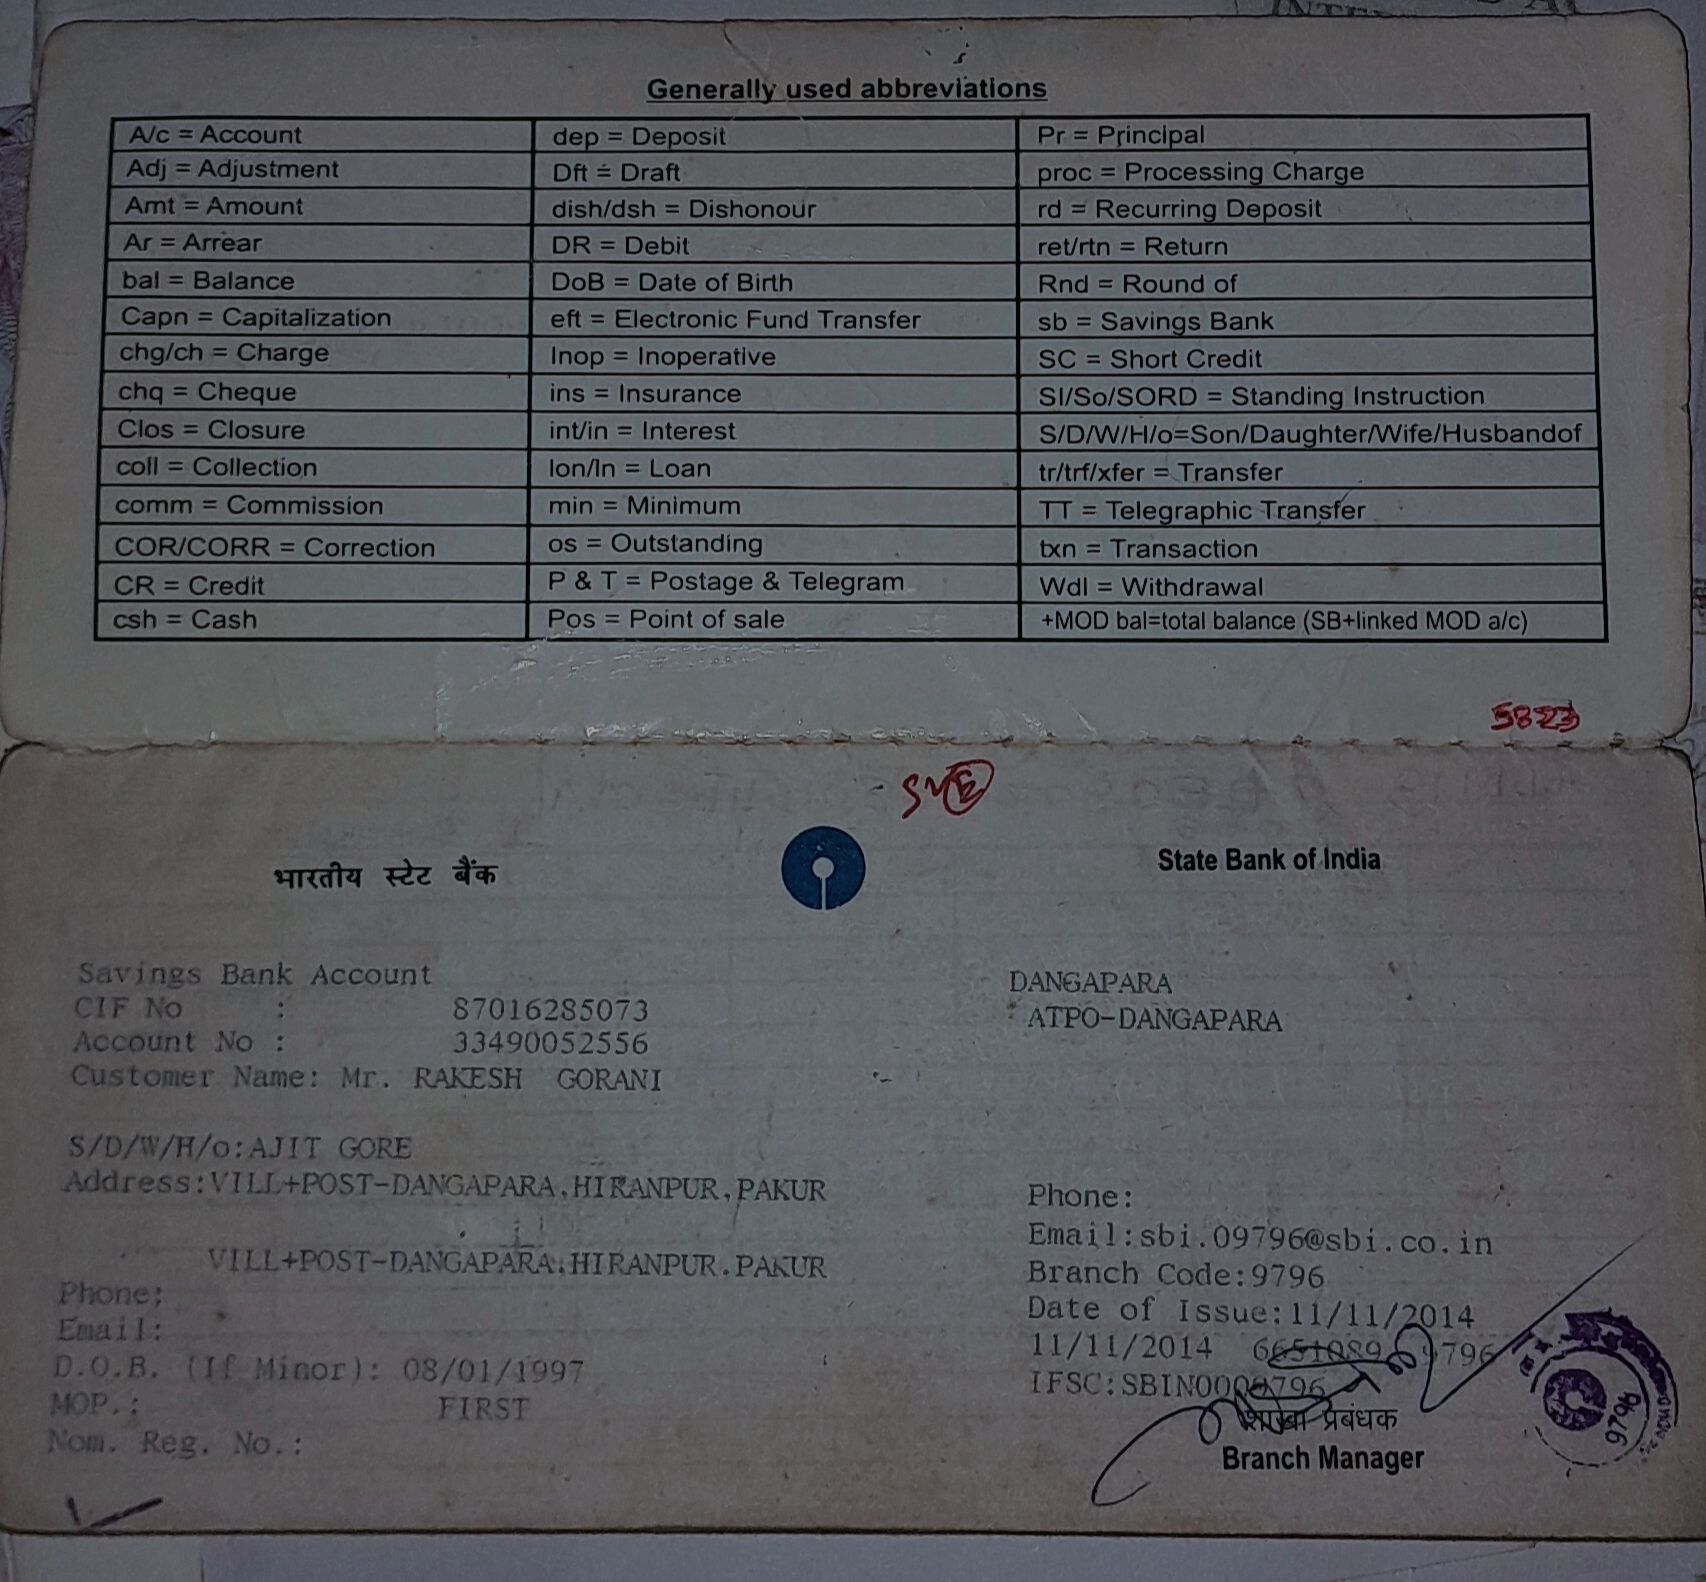 Generally used abbreviations
A/c = Account
Adj = Adjustment
Amt = Amount
Ar = Arrear
bal = Balance
Capn = Capitalization
chg/ch = Charge
chq = Cheque
Clos = Closure
coll = Collection
comm = Commission
COR/CORR = Correction
CR = Credit
csh = Cash
dep = Deposit
Dft = Draft
dish/dsh = Dishonour
DR = Debit
DoB = Date of Birth
eft = Electronic Fund Transfer
Inop = Inoperative
ins = Insurance
int/in = Interest
lon/ln = Loan
min = Minimum
os = Outstanding
P & T = Postage & Telegram
Pos = Point of sale
Pr = Principal
proc = Processing Charge
rd = Recurring Deposit
ret/rtn = Return
Rnd = Round of
sb = Savings Bank
SC = Short Credit
SI/So/SORD = Standing Instruction
S/D/W/H/o=Son/Daughter/Wife/Husbandof
tr/trf/xfer = Transfer
TT = Telegraphic Transfer
txn = Transaction
Wdl = Withdrawal
+MOD bal=total balance (SB+linked MOD a/c)
5823
भारतीय स्टेट बैंक
State Bank of India
Savings Bank Account
CIF No : 87016285073
Account No : 33490052556
Customer Name: Mr. RAKESH GORANI
S/D/W/H/o:AJIT GORE
Address:VILL+POST-DANGAPARA,HIRANPUR,PAKUR
VILL+POST-DANGAPARA,HIRANPUR.PAKUR
Phone:
Email:
D.O.B. (If Minor): 08/01/1997
MOP.: FIRST
Nom. Reg. No.:
DANGAPARA
ATPO-DANGAPARA
Phone:
Email:sbi.09796@sbi.co.in
Branch Code:9796
Date of Issue:11/11/2014
11/11/2014 6651089 9796
IFSC:SBIN0009796
शाखा प्रबंधक
Branch Manager
9796